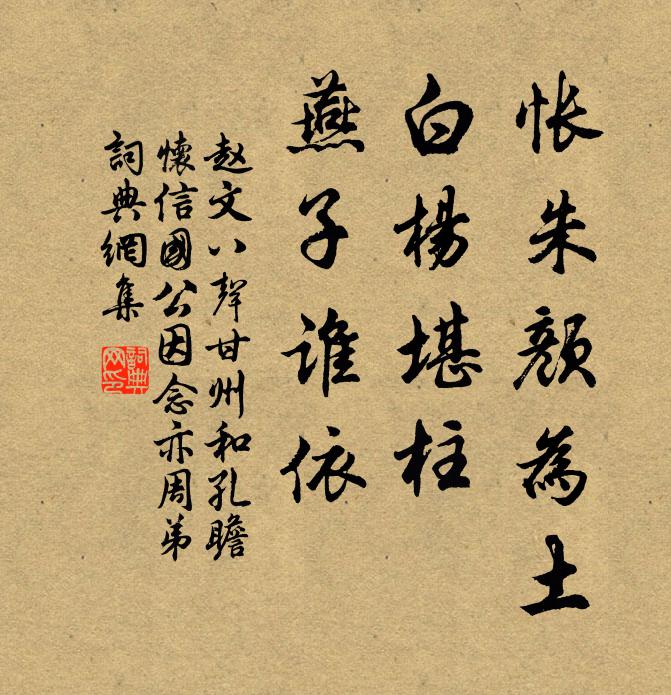 悵朱顏為土
白楊堪柱
燕子誰依
赵文八聲甘州和孔瞻
懷信國公因念亦周弟
詞典網集
詞典
网印